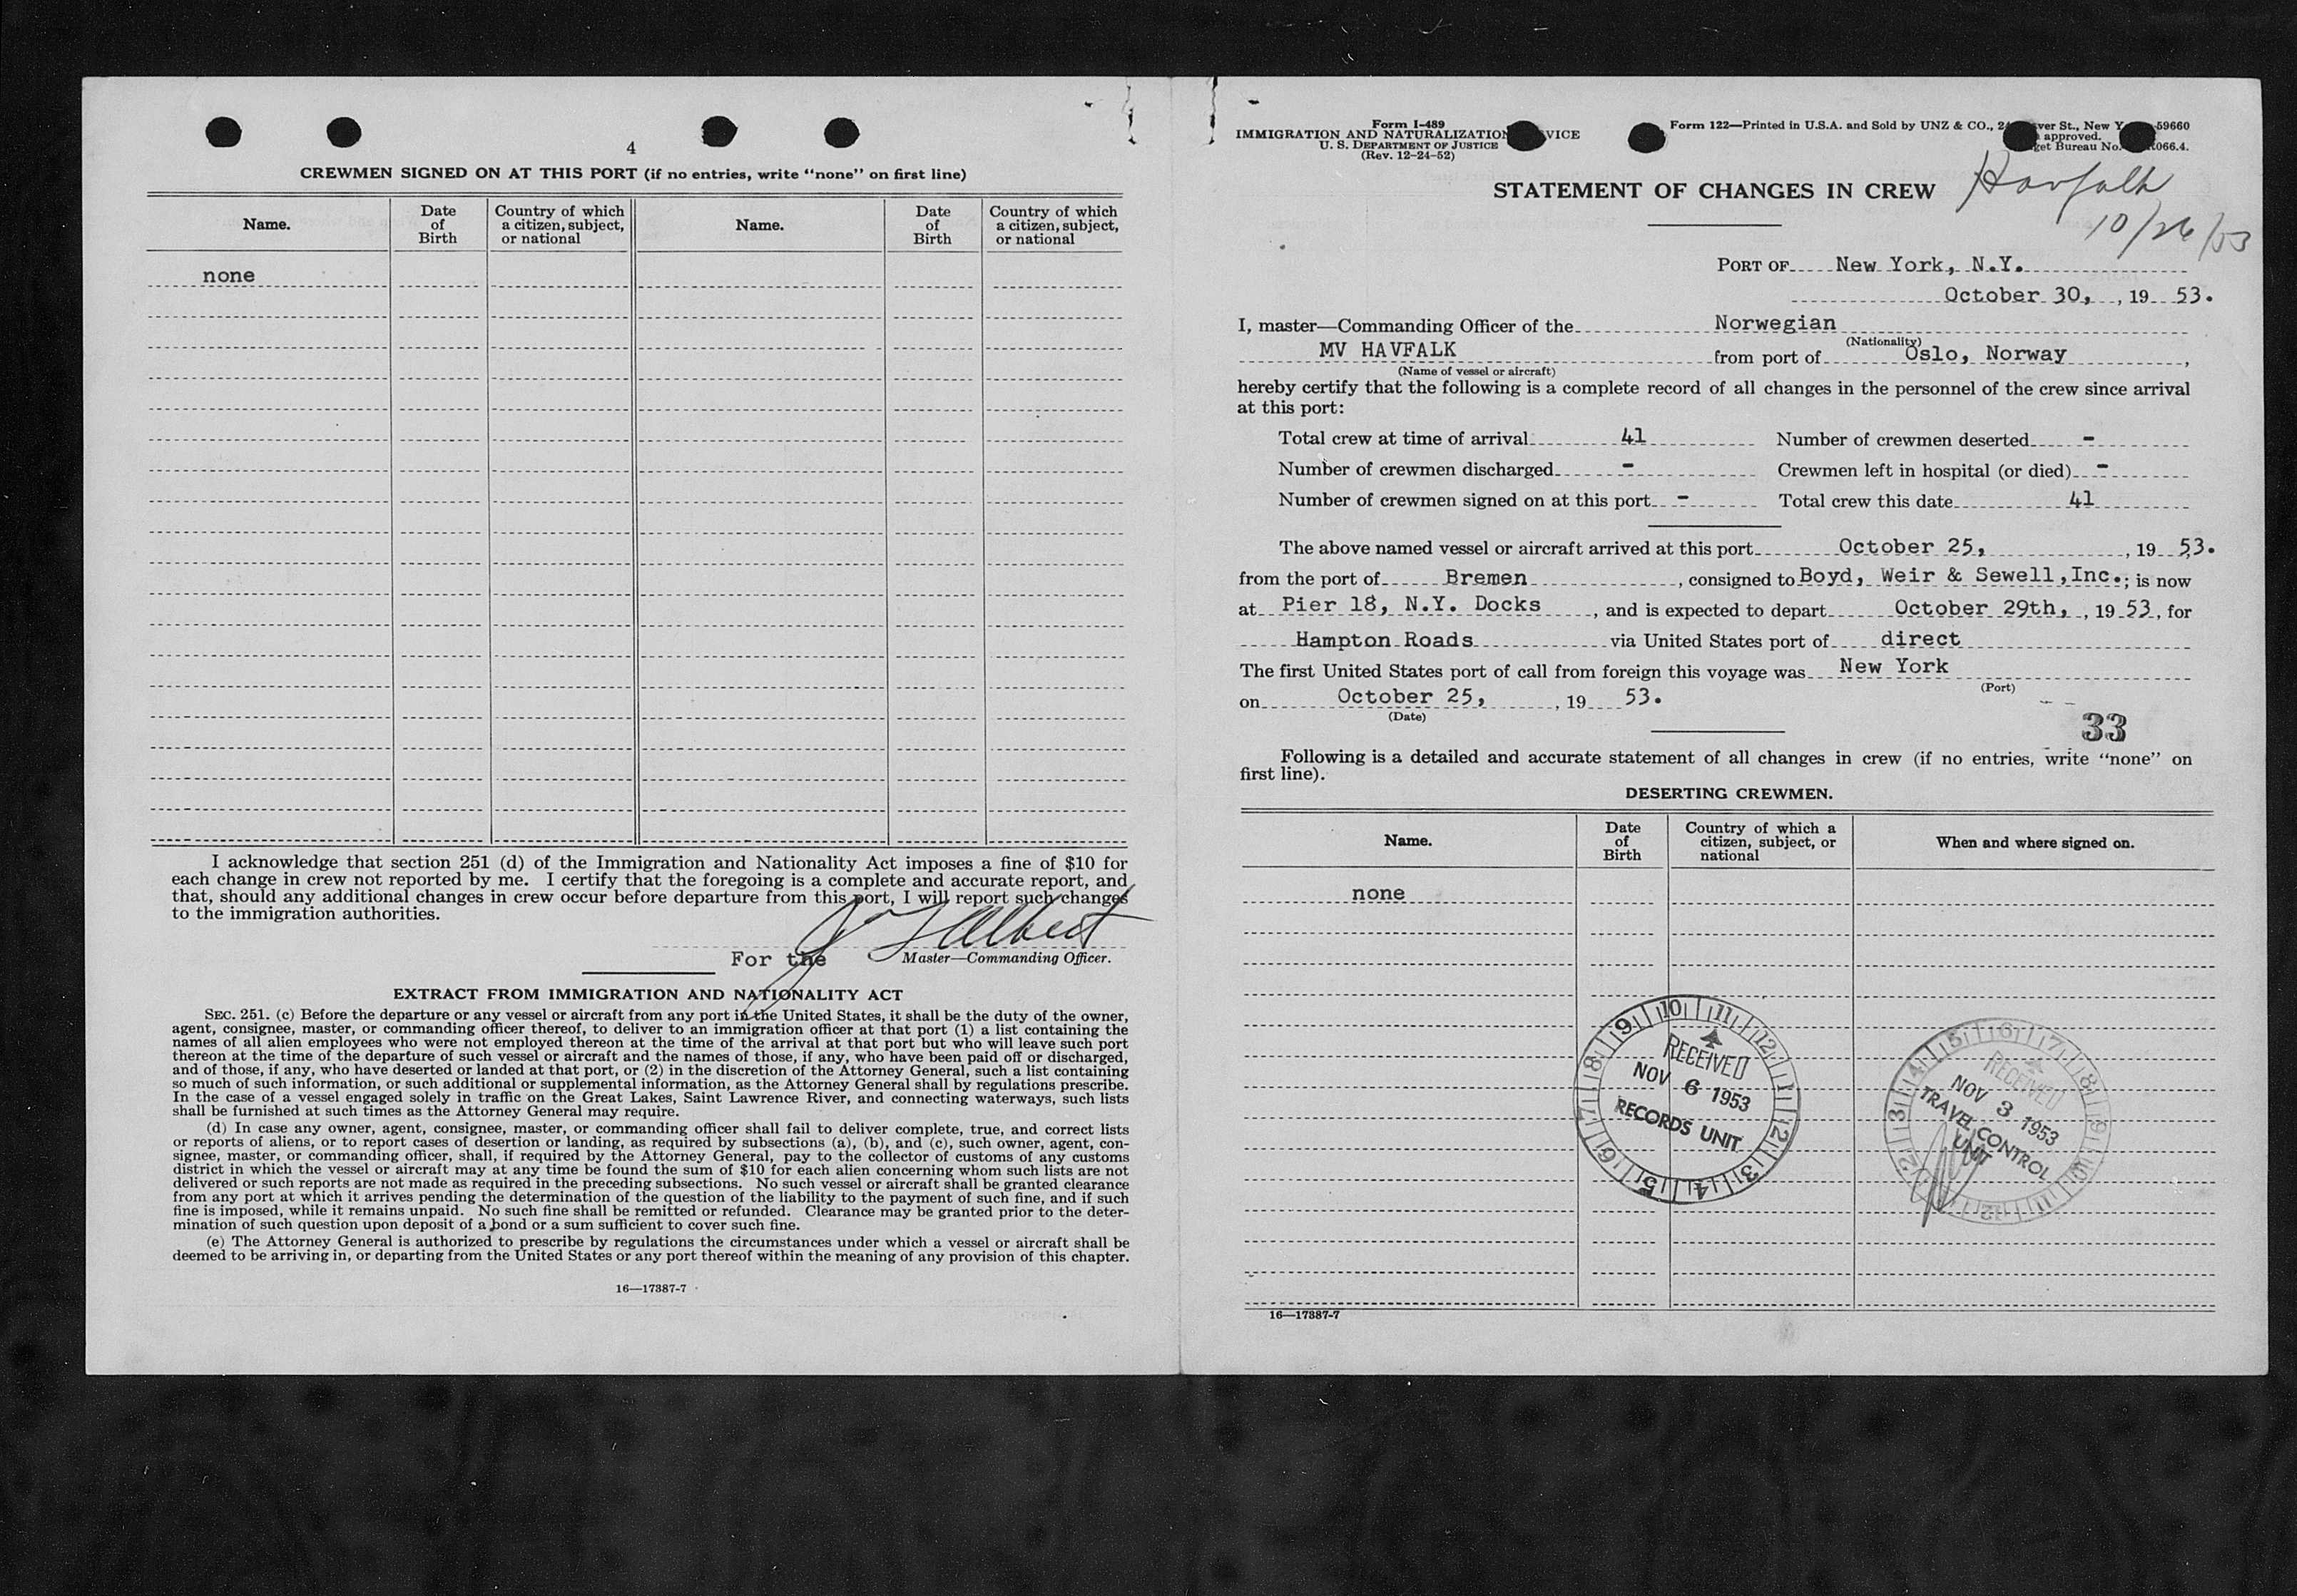 4
CREWMEN SIGNED ON AT THIS PORT (if no entries, write “none” on first line)
Name. Date of Birth Country of which a citizen, subject, or national Name. Date of Birth Country of which a citizen, subject, or national
none
I acknowledge that section 251 (d) of the Immigration and Nationality Act imposes a fine of $10 for
each change in crew not reported by me. I certify that the foregoing is a complete and accurate report, and
that, should any additional changes in crew occur before departure from this port, I will report such changes
to the immigration authorities.
For the Master—Commanding Officer.
EXTRACT FROM IMMIGRATION AND NATIONALITY ACT
SEC. 251. (c) Before the departure or any vessel or aircraft from any port in the United States, it shall be the duty of the owner,
agent, consignee, master, or commanding officer thereof, to deliver to an immigration officer at that port (1) a list containing the
names of all alien employees who were not employed thereon at the time of the arrival at that port but who will leave such port
thereon at the time of the departure of such vessel or aircraft and the names of those, if any, who have been paid off or discharged,
and of those, if any, who have deserted or landed at that port, or (2) in the discretion of the Attorney General, such a list containing
so much of such information, or such additional or supplemental information, as the Attorney General shall by regulations prescribe.
In the case of a vessel engaged solely in traffic on the Great Lakes, Saint Lawrence River, and connecting waterways, such lists
shall be furnished at such times as the Attorney General may require.
(d) In case any owner, agent, consignee, master, or commanding officer shall fail to deliver complete, true, and correct lists
or reports of aliens, or to report cases of desertion or landing, as required by subsections (a), (b), and (c), such owner, agent, con-
signee, master, or commanding officer, shall, if required by the Attorney General, pay to the collector of customs of any customs
district in which the vessel or aircraft may at any time be found the sum of $10 for each alien concerning whom such lists are not
delivered or such reports are not made as required in the preceding subsections. No such vessel or aircraft shall be granted clearance
from any port at which it arrives pending the determination of the question of the liability to the payment of such fine, and if such
fine is imposed, while it remains unpaid. No such fine shall be remitted or refunded. Clearance may be granted prior to the deter-
mination of such question upon deposit of a bond or a sum sufficient to cover such fine.
(e) The Attorney General is authorized to prescribe by regulations the circumstances under which a vessel or aircraft shall be
deemed to be arriving in, or departing from the United States or any port thereof within the meaning of any provision of this chapter.
16—17387-7
Form I-489
IMMIGRATION AND NATURALIZATION VICE
U. S. DEPARTMENT OF JUSTICE
(Rev. 12-24-52)
Form 122—Printed in U.S.A. and Sold by UNZ & CO., St., New 59660
approved.
Bureau No. 066.4.
STATEMENT OF CHANGES IN CREW
Havfalk
10/26/53
PORT OF New York, N.Y.
October 30, , 19 53.
I, master—Commanding Officer of the Norwegian
(Nationality)
MV HAVFALK from port of Oslo, Norway ,
(Name of vessel or aircraft)
hereby certify that the following is a complete record of all changes in the personnel of the crew since arrival
at this port:
Total crew at time of arrival 41 Number of crewmen deserted -
Number of crewmen discharged - Crewmen left in hospital (or died) -
Number of crewmen signed on at this port - Total crew this date 41
The above named vessel or aircraft arrived at this port October 25, , 19 53.
from the port of Bremen , consigned to Boyd, Weir & Sewell,Inc.; is now
at Pier 18, N.Y. Docks , and is expected to depart October 29th, , 19 53, for
Hampton Roads via United States port of direct
The first United States port of call from foreign this voyage was New York
(Port)
on October 25, , 19 53.
(Date)
33
Following is a detailed and accurate statement of all changes in crew (if no entries, write “none” on
first line).
DESERTING CREWMEN.
Name. Date of Birth Country of which a citizen, subject, or national When and where signed on.
none
10 11 12 1 2 3 4 5 6 7 8 9
RECEIVED
NOV 6 1953
RECORDS UNIT
5 6 7 8 9 10 11 12 1 2 3 4
RECEIVED
NOV 3 1953
TRAVEL CONTROL
UNIT
16—17387-7